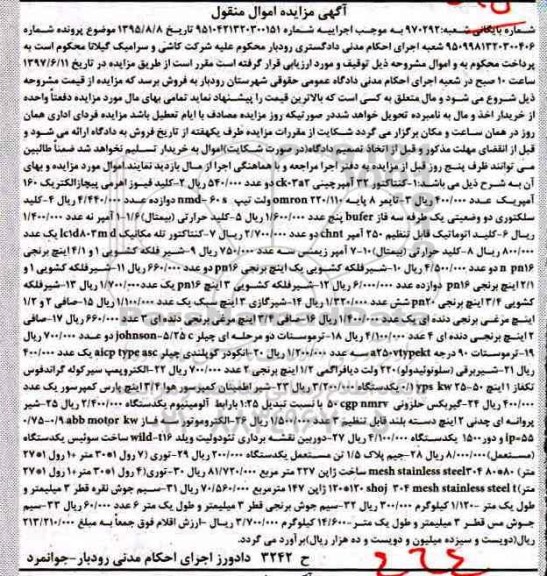 آگهی مزایده اموال منقول
شماره بایگانی شعبه: ۹۷۰۲۹۲ به موجب اجراییه شماره ۹۵۱۰۴۲۱۳۲۰۳۰۰۱۵۱ تاریخ ۱۳۹۵/۸/۸ موضوع پرونده شماره
۹۵۰۹۹۸۱۳۲۰۳۰۰۴۰۶ شعبه اجرای احکام مدنی دادگستری رودبار محکوم علیه شرکت کاشی و سرامیک گیلانا محکوم است به
پرداخت محکوم به و اموال مشروحه ذیل توقیف و مورد ارزیابی قرار گرفته است مقرر است از طریق مزایده در تاریخ ۱۳۹۷/۶/۱۱
ساعت ۱۰ صبح در شعبه اجرای احکام مدنی دادگاه عمومی حقوقی شهرستان رودبار به فروش برسد که مزایده از قیمت مشروحه
ذیل شروع می شود و مال متعلق به کسی است که بالاترین قیمت را پیشنهاد نماید تمامی بهای مال مورد مزایده دفعتاً واحده
از خریدار اخذ و مال به نامبرده تحویل خواهد شددر صورتیکه روز مزایده مصادف با ایام تعطیل باشد مزایده فردای اداری همان
روز در همان ساعت و مکان برگزار می گردد شکایت از مقررات مزایده ظرف یکهفته از تاریخ فروش به دادگاه ارائه می شود و
قبل از انقضای مهلت مذکور و قبل از اتخاذ تصمیم دادگاه(در صورت شکایت)اموال به خریدار تسلیم نخواهد شد ضمناً طالبین
می توانند ظرف پنج روز قبل از مزایده به دفتر اجرا مراجعه و با هماهنگی اجرا از مال بازدید نمایند.اموال مورد مزایده و بهای
آن به شرح ذیل می باشد:۱-کنتاکتور ۳۲ آمپرچینی ck-۳a۲ دو عدد ۵۴۰/۰۰۰ ریال ۲-کلید فیوز اهرمی پیچازالکتریک ۱۶۰
آمپریک عـدد ۴۰۰/۰۰۰ ریال ۳-تایمر ۸ پایه omron ۲۲۰/۱۱۰ ولت تیپ nmd-۶۰s دوازده عدد ۴/۴۴۰/۰۰۰ ریال ۴-کلید
سلکتوری دو وضعیتی یک طرفه سه فاز bufer پنج عدد ۱/۶۰۰/۰۰۰ ریال ۵-کلید حرارتی (بیمتال) ۱-۱/۶ آمپر نه عدد ۱/۴۰۰/۰۰۰
ریال ۶-کلید اتوماتیک قابل تنظیم ۲۵۰ آمپر chnt دو عدد ۲/۷۰۰/۰۰۰ ریال ۷-کنتاکتور تله مکانیک lc۱d۸۰۳md یک عدد
۸۰۰/۰۰۰ ریال ۸-کلید حرارتی (بیمتال) ۷-۱۰ آمپر زیمنس سه عدد ۷۵۰/۰۰۰ ریال ۹-شیر فلکه کشویی ۱ و ۴/۱ اینچ برنجی
n pn۱۶ دو عدد ۴/۵۰۰/۰۰۰ ریال ۱۰-شیرفلکه کشویی یک اینچ برنجی pn۱۶ دو عدد ۶۶۰/۰۰۰ ریال ۱۱-شیرفلکه کشویی ۱ و
۱/۲ اینچ برنجی pn۱۶ دوازده عدد ۶/۰۰۰/۰۰۰ ریال ۱۲-شیرفلکه کشویی ۳ اینچ pn۱۶ یک عدد ۱/۷۰۰/۰۰۰ ریال ۱۳-شیرفلکه
کشویی ۳/۴ اینچ برنجی pn۲۰ شش عدد ۱/۳۲۰/۰۰۰ ریال ۱۴-شیرگازی ۳ اینچ سبک یک عدد ۱/۱۰۰/۰۰۰ ریال ۱۵-صافی ۲ و ۱/۲
اینـچ مرغـی برنجی دنده ای یک عدد ۱/۴۰۰/۰۰۰ ریال ۱۶-صافی ۳/۴ اینچ مرغی برنجی دنده ای ۳ عدد ۶۶۰/۰۰۰ ریال ۱۷-صافی
۲ اینچ برنجـی دنده ای ۴ عدد ۴/۱۰۰/۰۰۰ ریال ۱۸-ترموستات دو مرحلـه ای چیلر johnson-۵/۲۵c دو عـدد ۷۰۰/۰۰۰ ریال
۱۹-ترموستات ۹۰ درجه a۲۵۰vtypekt سه عدد ۱/۲۰۰/۰۰۰ ریال ۲۰-انکودر کوپلندی چیلر aicp type asc یک عدد ۴۰۰/۰۰۰
ریال ۲۱-شیربرقی (سلونوئیدولو) ۲۲۰ ولت دیافراگمی ۱/۲ اینچ برنجی ۲ عدد ۷۰۰/۰۰۰ ریال ۲۲-الکتروپمپ سیرکوله گراندفوس
تکفاز ۱ اینچ ۵۰-۲۵ yps kw ۰/۱ یکدستگاه ۳/۲۰۰/۰۰۰ ریال ۲۳-شیر اطمینان کمپرسور هوا ۳/۴ اینچ پارس کمپرسور یک عدد
۴۰۰/۰۰۰ ریال ۲۴-گیربکس حلزونی cgp nmrv ۵۰ با نسبت تبدیل ۱:۲۵ بارابط آلومینیوم یکدستگاه ۲/۴۰۰/۰۰۰ ریال ۲۵-شیر
پروانـه ای چدنی ۲ اینچ دسته بلند قابل تنظیم ۳ عدد ۱/۵۰۰/۰۰۰ ریال ۲۶-الکتروموتور تک فاز abb motor kw ۰/۷۵-۰/۹
ip۵۵ و دور ۱۵۰۰ یکدستگاه ۴/۱۰۰/۰۰۰ ریال ۲۷-دوربین نقشه برداری تئودولیت ویلد wild-t۱۶ ساخت سوئیس یکدستگاه
(مستعمل)۸/۰۰۰/۰۰۰ ریال ۲۸-جیم پلاک ۱/۵ تن مستعمل یکدستگاه ۲۰۰/۰۰۰ ریال ۲۹-توری (۷ رول ۱*۳۰ متر و ۱ رول ۱*۲۷
متر) mesh stainless steel۳۰۴ ۸۰*۸۰ ساخت ژاپن ۲۲۷ متر مربع ۸۱/۷۲۰/۰۰۰ ریال ۳۰-توری(۴ رول ۱*۳۰ متر+۱ رول ۱*۲۷
متر) mesh stainless steel t ۳۰۴ shoj ۱۲۰*۱۲۰ ژاپن ۱۴۷ مترمربع ۷۰/۵۶۰/۰۰۰ ریال ۳۱-سیم جوش نقره قطر ۳ میلیمتر و
طول یک متر-۱/۱۲۰ کیلوگرم ۳۰۰/۰۰۰ ریال ۳۲-سیم جوش برنجی قطر ۳ میلیمتر و طول یک متر ۶ عدد ۶۰/۰۰۰ ریال ۳۳-سیم
جوش مس قطر ۳ میلیمتر و طول یک متـر-۱۴/۶۰۰ کیلوگرم ۳/۷۰۰/۰۰۰ ریال -ارزش اقلام فوق جمعاً به مبلغ ۲۱۳/۲۱۰/۰۰۰
(دویست و سیزده میلیون و دویست و ده هزار ریال)برآورد می گردد.
ح ۳۲۴۲ دادورز اجرای احکام مدنی رودبار-جوانمرد